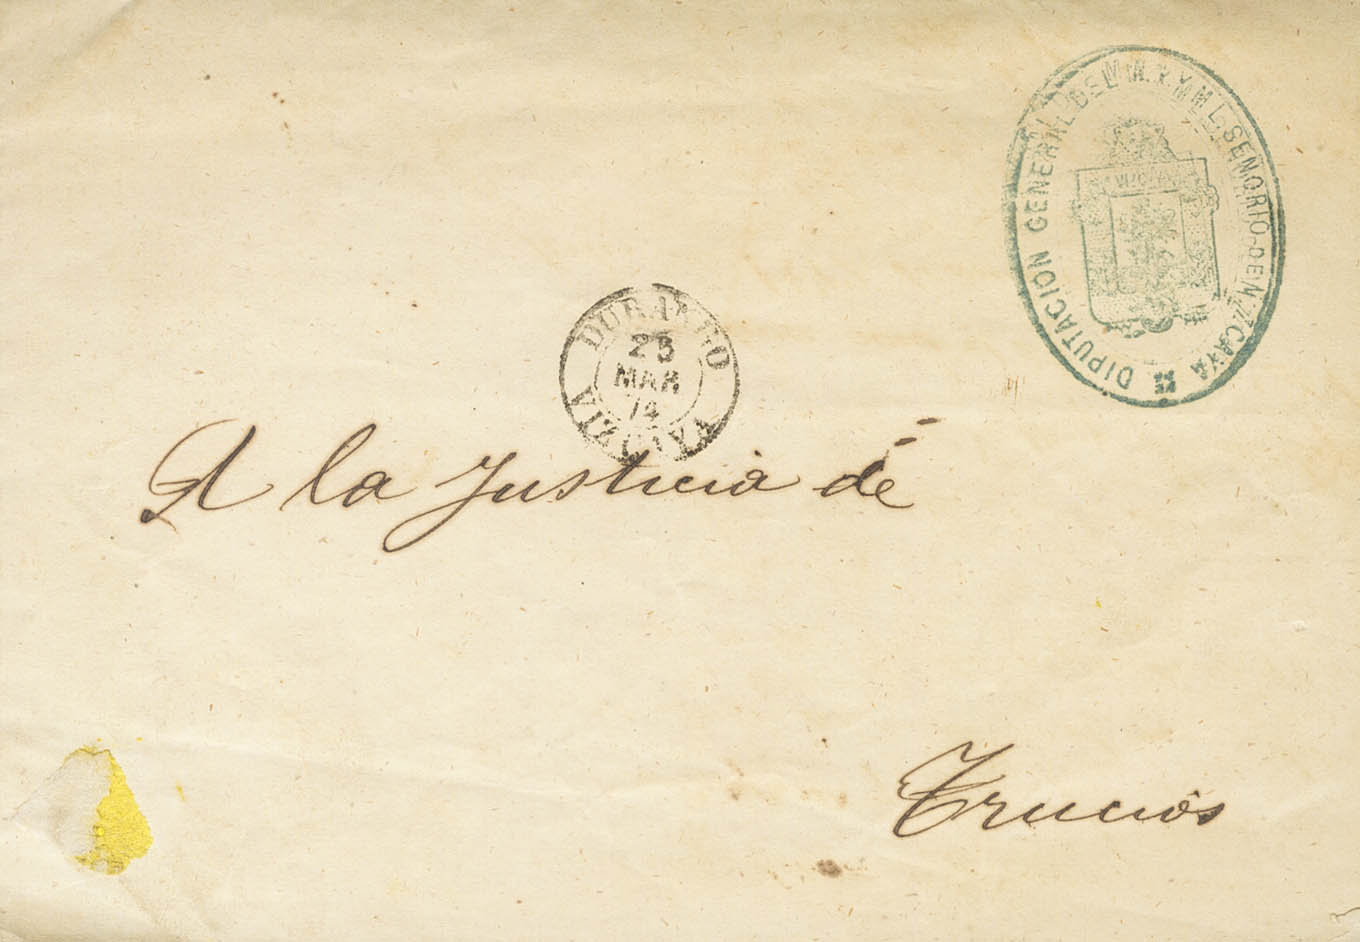 DIPUTACION GENERAL DEL M.N. Y M.L. SEÑORIO DE VIZCAYA
VIZCAYA
DURANGO
25
MAR
74
VIZCAYA
A la Justicia dé
Trucios